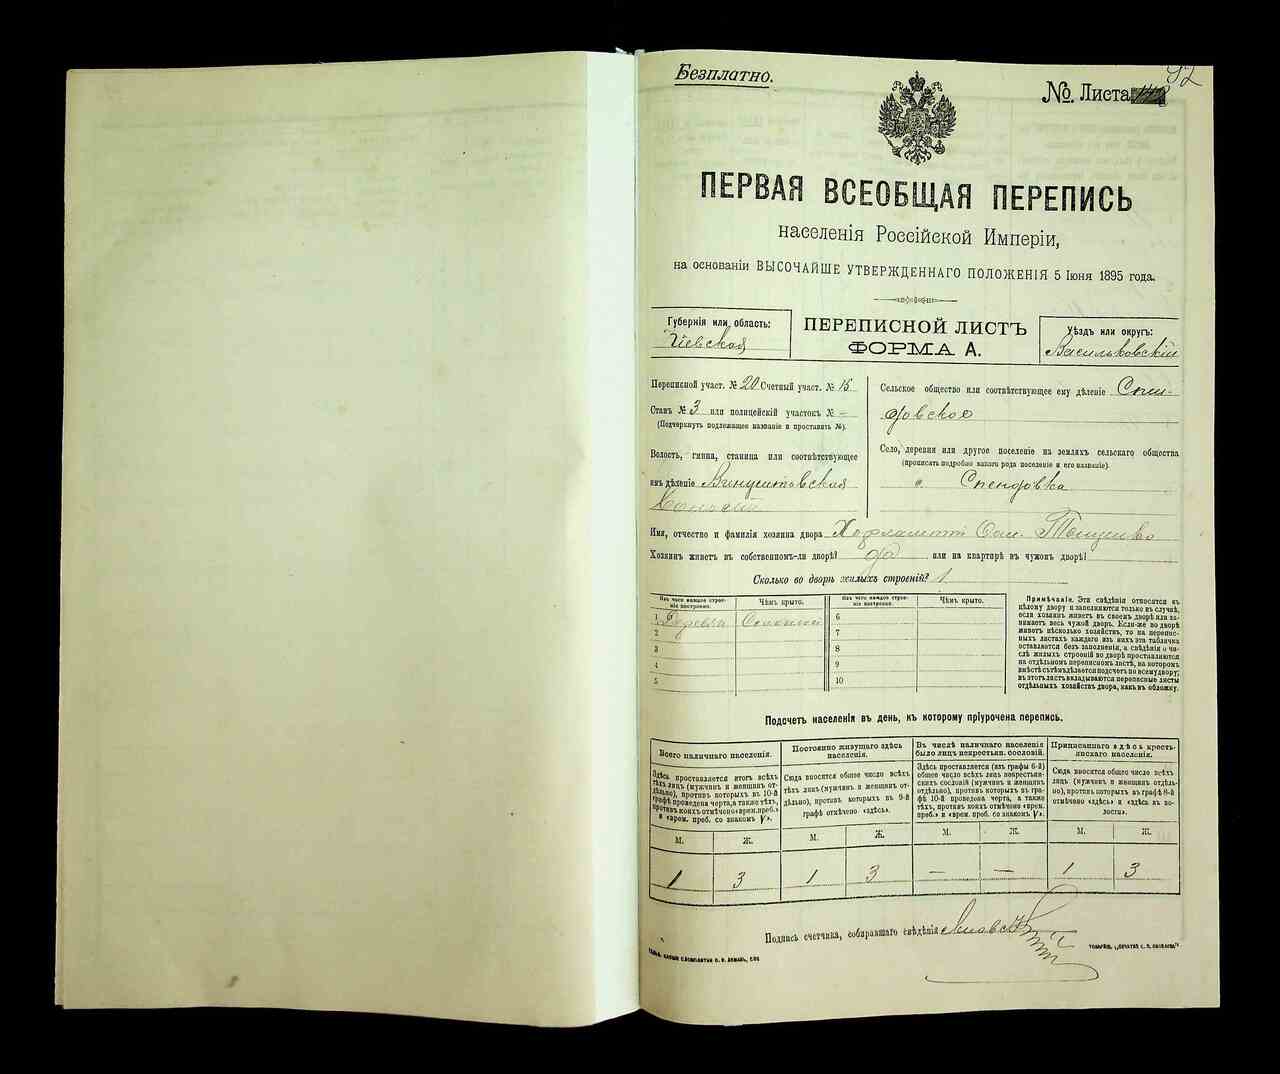 Безплатно.
92
№. Листа
ПЕРВАЯ ВСЕОБЩАЯ ПЕРЕПИСЬ
населенія Россійской Имперіи,
на основаніи ВЫСОЧАЙШЕ УТВЕРЖДЕННАГО ПОЛОЖЕНІЯ 5 Іюня 1895 года.
Губернія или область:
Кіевская
ПЕРЕПИСНОЙ ЛИСТЪ
ФОРМА А.
Уѣздъ или округъ:
Васильковскій
Переписной участ. № 20 Счетный участ. № 15
Станъ № 3 или полицейскій участокъ № —
(Подчеркнуть подлежащее названіе и проставить №).
Волость, гмина, станица или соотвѣтствующее
имъ дѣленіе
Сельское общество или соотвѣтствующее ему дѣленіе Спен-
довское
Село, деревня или другое поселеніе на земляхъ сельскаго общества
(прописать подробно какого рода поселеніе и его названіе).
с. Спендовка
Имя, отчество и фамилія хозяина двора
Хозяинъ живетъ въ собственномъ-ли дворѣ? да или на квартирѣ въ чужомъ дворѣ?
Сколько во дворѣ жилыхъ строеній? 1
Изъ чего каждое строе-
ніе построено.
Чѣмъ крыто.
1 Дерева Соломой
2
3
4
5
Изъ чего каждое строе-
ніе построено.
Чѣмъ крыто.
6
7
8
9
10
Примѣчаніе. Эти свѣдѣнія относятся къ
цѣлому двору и заполняются только въ случаѣ,
если хозяинъ живетъ въ своемъ дворѣ или за-
нимаетъ весь чужой дворъ. Если-же во дворѣ
живетъ нѣсколько хозяйствъ, то на перепис-
ныхъ листахъ каждаго изъ нихъ эта табличка
оставляется безъ заполненія, а свѣдѣнія о чи-
слѣ жилыхъ строеній во дворѣ проставляются
на отдѣльномъ переписномъ листѣ, на которомъ
вмѣстѣ съ тѣмъ дѣлается подсчетъ по всему двору;
въ этотъ листъ вкладываются переписные листы
отдѣльныхъ хозяйствъ двора, какъ въ обложку.
Подсчетъ населенія въ день, къ которому пріурочена перепись.
Всего наличнаго населенія.
Здѣсь проставляется итогъ всѣхъ
тѣхъ лицъ (мужчинъ и женщинъ от-
дѣльно), противъ которыхъ въ 10-й
графѣ проведена черта, а также тѣхъ,
противъ коихъ отмѣчено «врем. преб.»
и «врем. преб. со знакомъ V».
М. Ж.
1 3
Постоянно живущаго здѣсь
населенія.
Сюда вносится общее число всѣхъ
тѣхъ лицъ (мужчинъ и женщинъ от-
дѣльно), противъ которыхъ въ 9-й
графѣ отмѣчено «здѣсь».
М. Ж.
1 3
Въ числѣ наличнаго населенія
было лицъ некрестьян. сословій.
Здѣсь проставляется (изъ графы 6-й)
общее число всѣхъ лицъ некрестьян-
скихъ сословій (мужчинъ и женщинъ
отдѣльно), противъ которыхъ въ гра-
фѣ 10-й проведена черта, а также
тѣхъ, противъ коихъ отмѣчено «врем.
преб.» и «врем. преб. со знакомъ V».
М. Ж.
— —
Приписаннаго здѣсь кресть-
янскаго населенія.
Сюда вносится общее число всѣхъ
лицъ (мужчинъ и женщинъ отдѣль-
но), противъ которыхъ въ графѣ 8-й
отмѣчено «здѣсь» и «здѣсь въ во-
лости».
М. Ж.
1 3
Подпись счетчика, собиравшаго свѣдѣнія